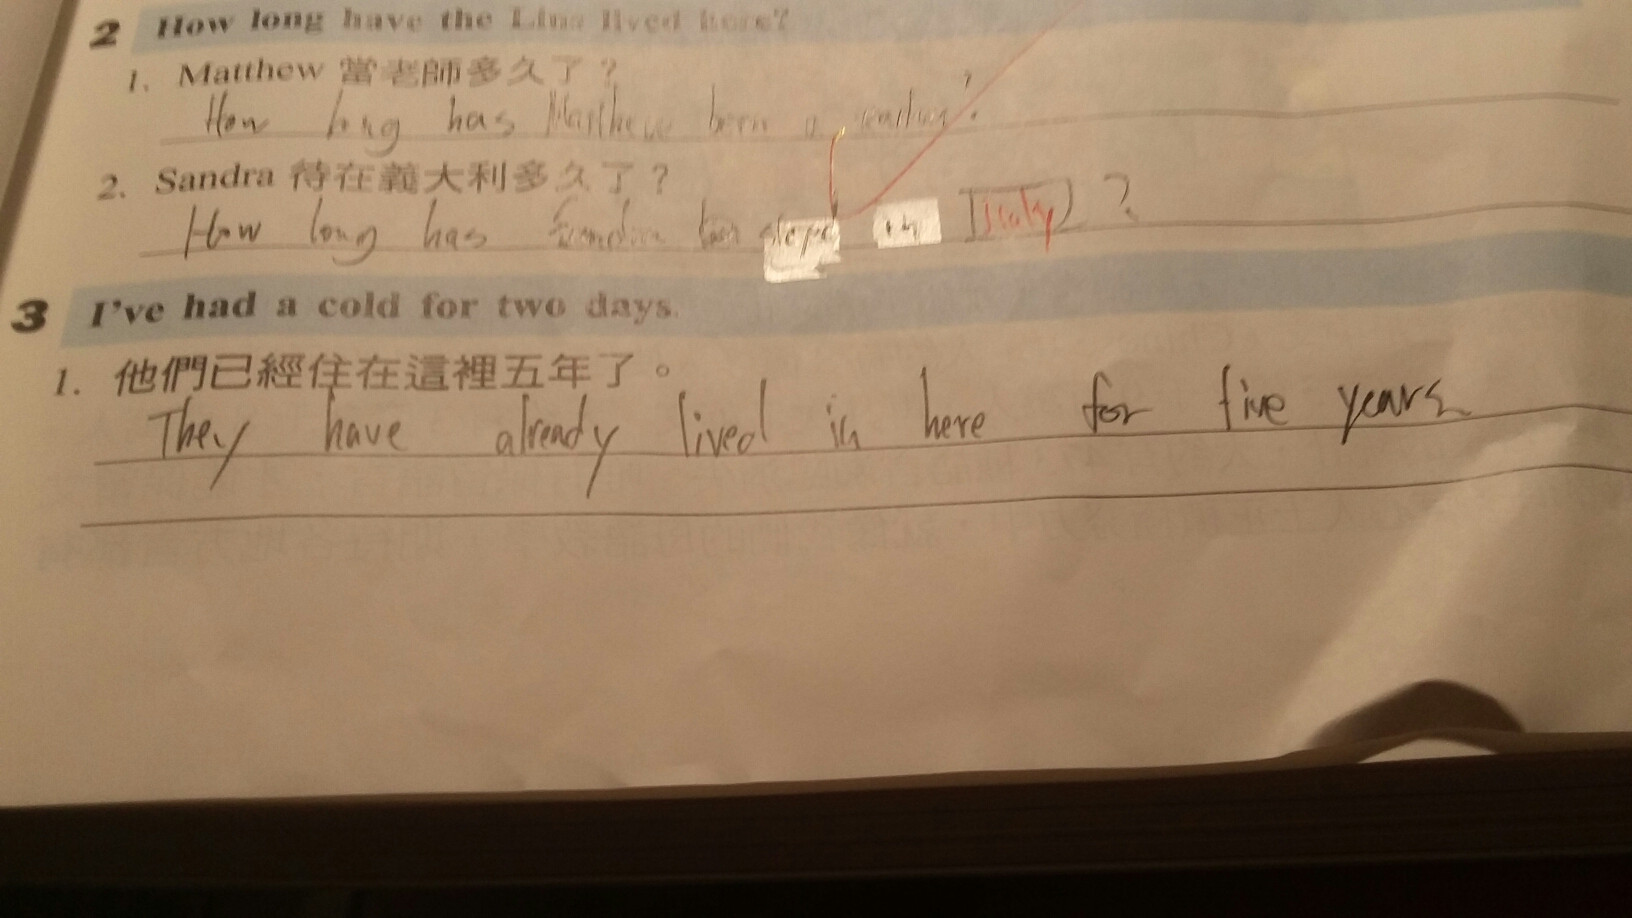 2 How long have the Lins lived here?
1. Matthew 當老師多久了？
How long has Matthew been a ?
2. Sandra 待在義大利多久了？
How long has Sandra in Italy ?
3 I've had a cold for two days.
1. 他們已經住在這裡五年了。
They have already lived in here for five years